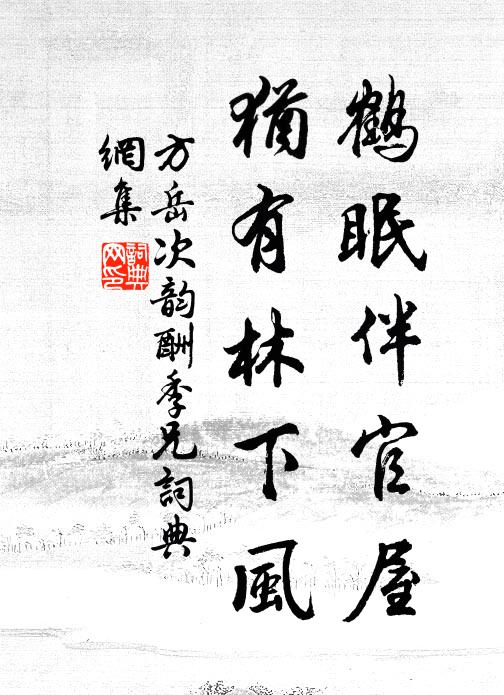 鶴眠伴官屋
猶有林下風
方岳次韵酬季兄詞典
網集
詞典网印